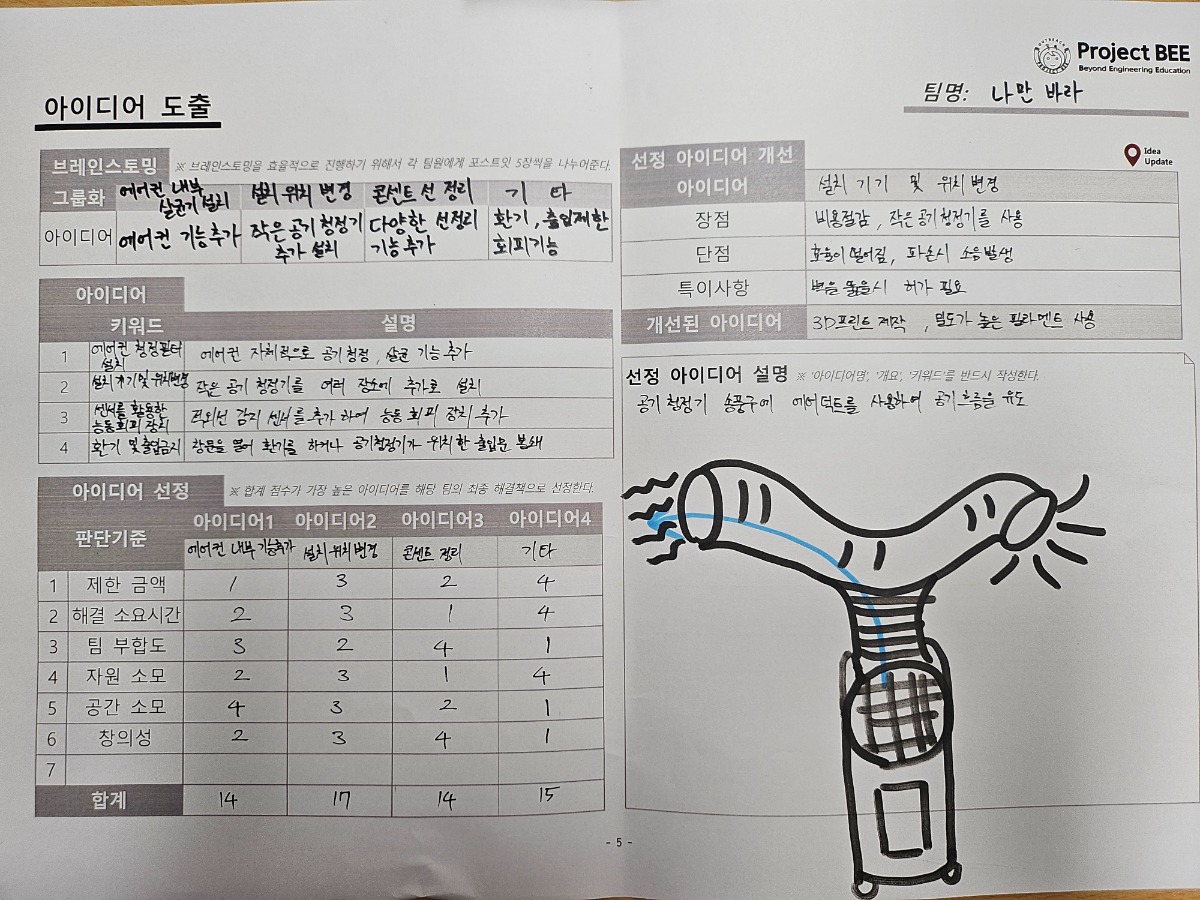 Project BEE
Beyond Engineering Education
팀명: 나만 바라
아이디어 도출
브레인스토밍 ※ 브레인스토밍을 효율적으로 진행하기 위해서 각 팀원에게 포스트잇 5장씩을 나누어준다.
그룹화 에어컨 내부 살균기 설치 설치 위치 변경 콘센트 선 정리 기 타
아이디어 에어컨 기능추가 작은 공기 청정기 추가 설치 다양한 선정리 기능 추가 환기, 출입제한 회피기능
아이디어
키워드 설명
1 에어컨 청정필터 설치 에어컨 자체적으로 공기 청정, 살균 기능 추가
2 설치 기기 및 위치변경 작은 공기 청정기를 여러 장소에 추가로 설치
3 센서를 활용한 능동회피 장치 적외선 감지 센서를 추가하여 능동 회피 장치 추가
4 환기 및 출입금지 창문을 열어 환기를 하거나 공기청정기가 위치한 출입문 봉쇄
아이디어 선정 ※ 합계 점수가 가장 높은 아이디어를 해당 팀의 최종 해결책으로 선정한다.
판단기준 아이디어1 아이디어2 아이디어3 아이디어4
에어컨 내부 기능추가 설치 위치 변경 콘센트 정리 기타
1 제한 금액 1 3 2 4
2 해결 소요시간 2 3 1 4
3 팀 부합도 3 2 4 1
4 자원 소모 2 3 1 4
5 공간 소모 4 3 2 1
6 창의성 2 3 4 1
7
합계 14 17 14 15
선정 아이디어 개선
Idea
Update
아이디어 설치 기기 및 위치 변경
장점 비용절감, 작은 공기청정기를 사용
단점 효율이 떨어짐, 파손시 소음발생
특이사항 벽을 뚫을시 허가 필요
개선된 아이디어 3D프린트 제작, 밀도가 높은 필라멘트 사용
선정 아이디어 설명 ※ '아이디어명', '개요', '키워드'를 반드시 작성한다.
공기 청정기 송풍구에 에어덕트를 사용하여 공기흐름을 유도
- 5 -